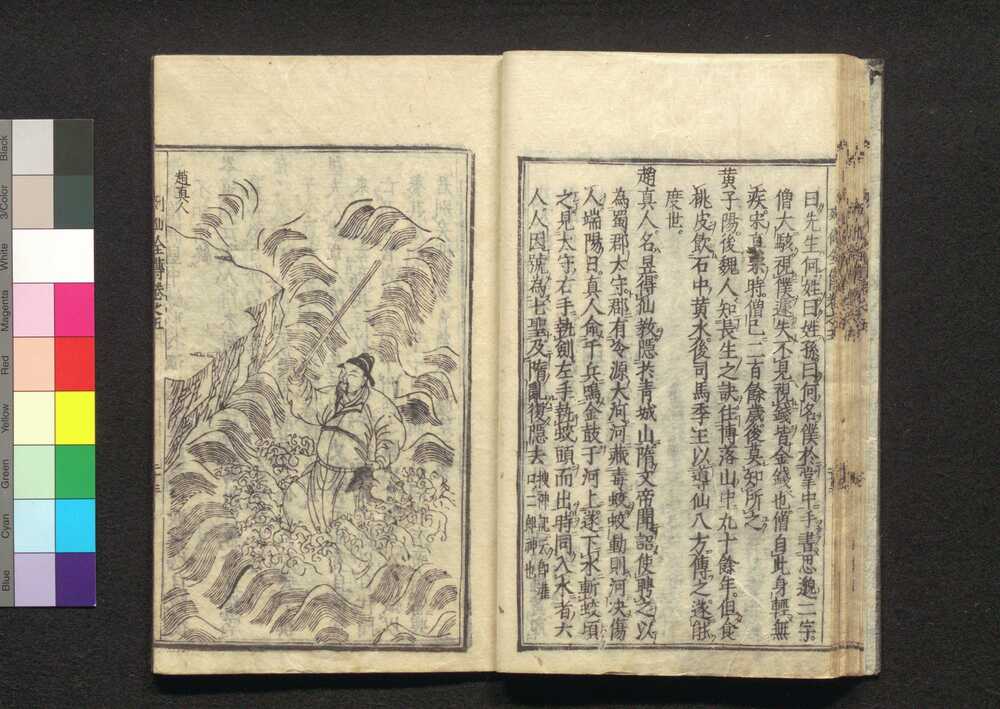 曰先生何姓曰姓孫曰何名僕於掌中手書思邈二字
僧大駭視僕遽失不見視錢皆金錢也僧自此身輕無
疾宋真宗時僧已二百餘歲後莫知所之
黄子陽後魏人知長生之訣住博落山中九十餘年但食
桃皮飲石中黄水後司馬季主以導仙八方傳之遂能
度世
趙真人名昱得仙教隱於青城山隋文帝聞詔使聘之以
為蜀郡太守郡有冷源大河河藏毒蛟蛟動則河决傷
人端陽日真人命千兵鳴金鼓于河上遂下水斬蛟頃
之見太守右手執劍左手執蛟頭而出時同入水者六
人人因號為七聖及隋亂復隱去 搜神記云即灌
口二郎神也
趙真人
列仙全傳卷之五
二十三
Black
3/Color
White
Magenta
Red
Yellow
Green
Cyan
Blue